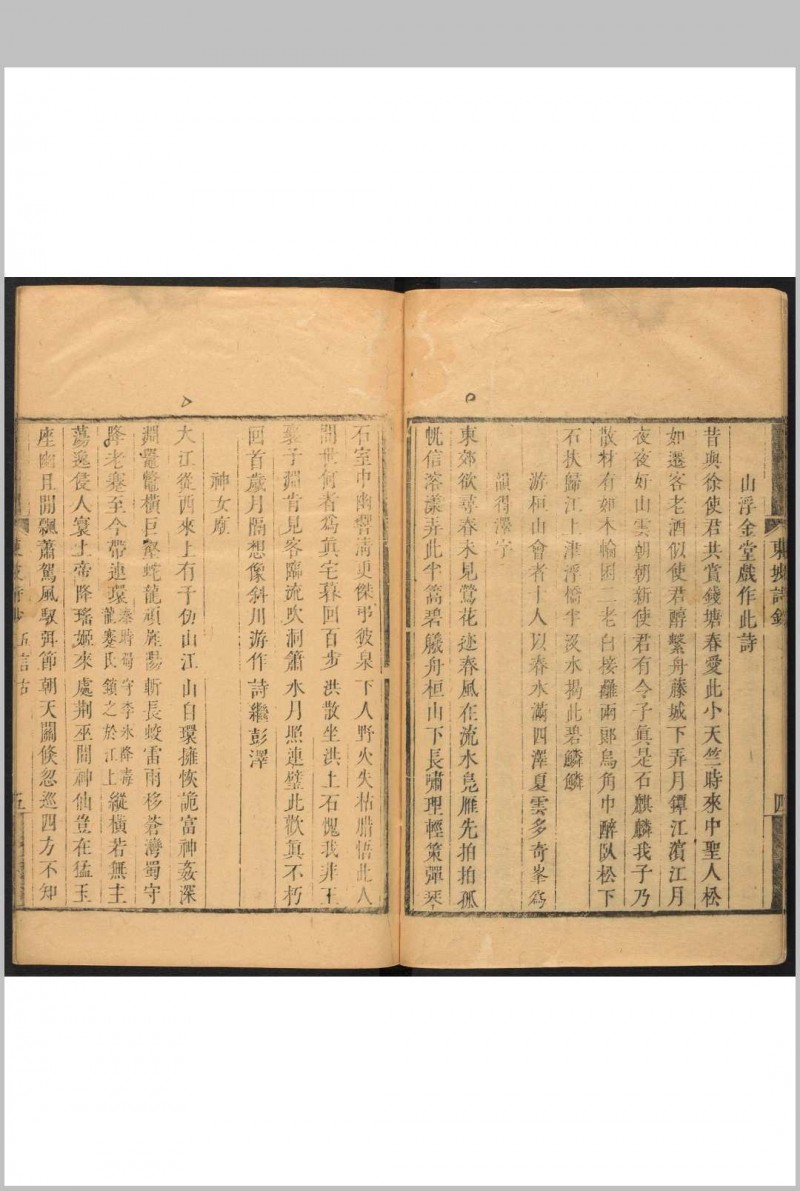 東坡詩鈔
四
山浮金堂戲作此詩
昔與徐使君共賞錢塘春愛此小天竺時來中聖人松
如遷客老酒似使君醇繫舟藤城下弄月鐔江濱江月
夜夜好山雲朝朝新使君有令子眞是石麒麟我子乃
散材有如木輪囷二老白接䍦兩郞烏角巾醉臥松下
石扶歸江上津浮橋半沒水揭此碧鱗鱗
游桓山會者十人以春水滿四澤夏雲多奇峯爲
韻得澤字
東郊欲尋春未見鶯花迹春風在流水鳧雁先拍拍孤
帆信溶漾弄此半篙碧艤舟桓山下長嘯理輕策彈琴
石室中幽響淸更傑弔彼泉下人野火失枯腊悟此人
間世何者爲眞宅暮回百步洪散坐洪上石愧我非王
襄子淵肯見客臨流吹洞簫水月照連璧此歡眞不朽
回首歲月隔想像斜川游作詩繼彭澤
神女廟
大江從西來上有千仞山江山自環擁恢詭富神姦深
淵鼉鼈橫巨壑蛇龍頑旌陽斬長蛟雷雨移蒼灣蜀守
降老蹇至今帶連環秦時蜀守李氷降毒龍蹇氏鎖之於江上縱橫若無主
蕩逸侵人寰上帝降瑤姬來處荊巫間神仙豈在猛玉
座幽且閒飄蕭駕風馭弭節朝天關倏忽巡四方不知
東坡詩鈔
五言古
五